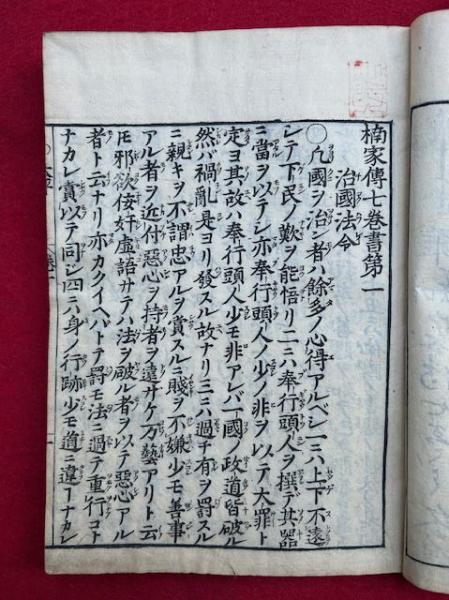 楠家傳七巻書第一
治國法令
〇凡國ヲ治ル者ハ餘多ノ心得アルベシ一ニハ上下不遠
シテ下民ノ歎ヲ能悟リ二ニハ奉行頭人ヲ撰デ其器
ニ當ヲ以テシ亦奉行頭人ノ少ノ非ヲ以テ大罪ト
定ヨ其故ハ奉行頭人少モ非アレバ一國ノ政道皆破ル
然バ禍亂是ヨリ發スル故ナリ三ニハ過チ有ヲ罰スル
ニ親キヲ不謂忠アルヲ賞スルニ賤ヲ不嫌少モ善事
アル者ヲ近付惡心ヲ持者ヲ遠サケ万藝アリト云
モ邪欲佞奸虚諂サテハ法ヲ破ル者ヲ以テ惡心アル
者ト云ナリ亦カクイヘバトテ罰モ法ニ過テ重行コト
ナカレ賞以テ同シ四ニハ身ノ行跡少モ道ニ違ヿナカレ